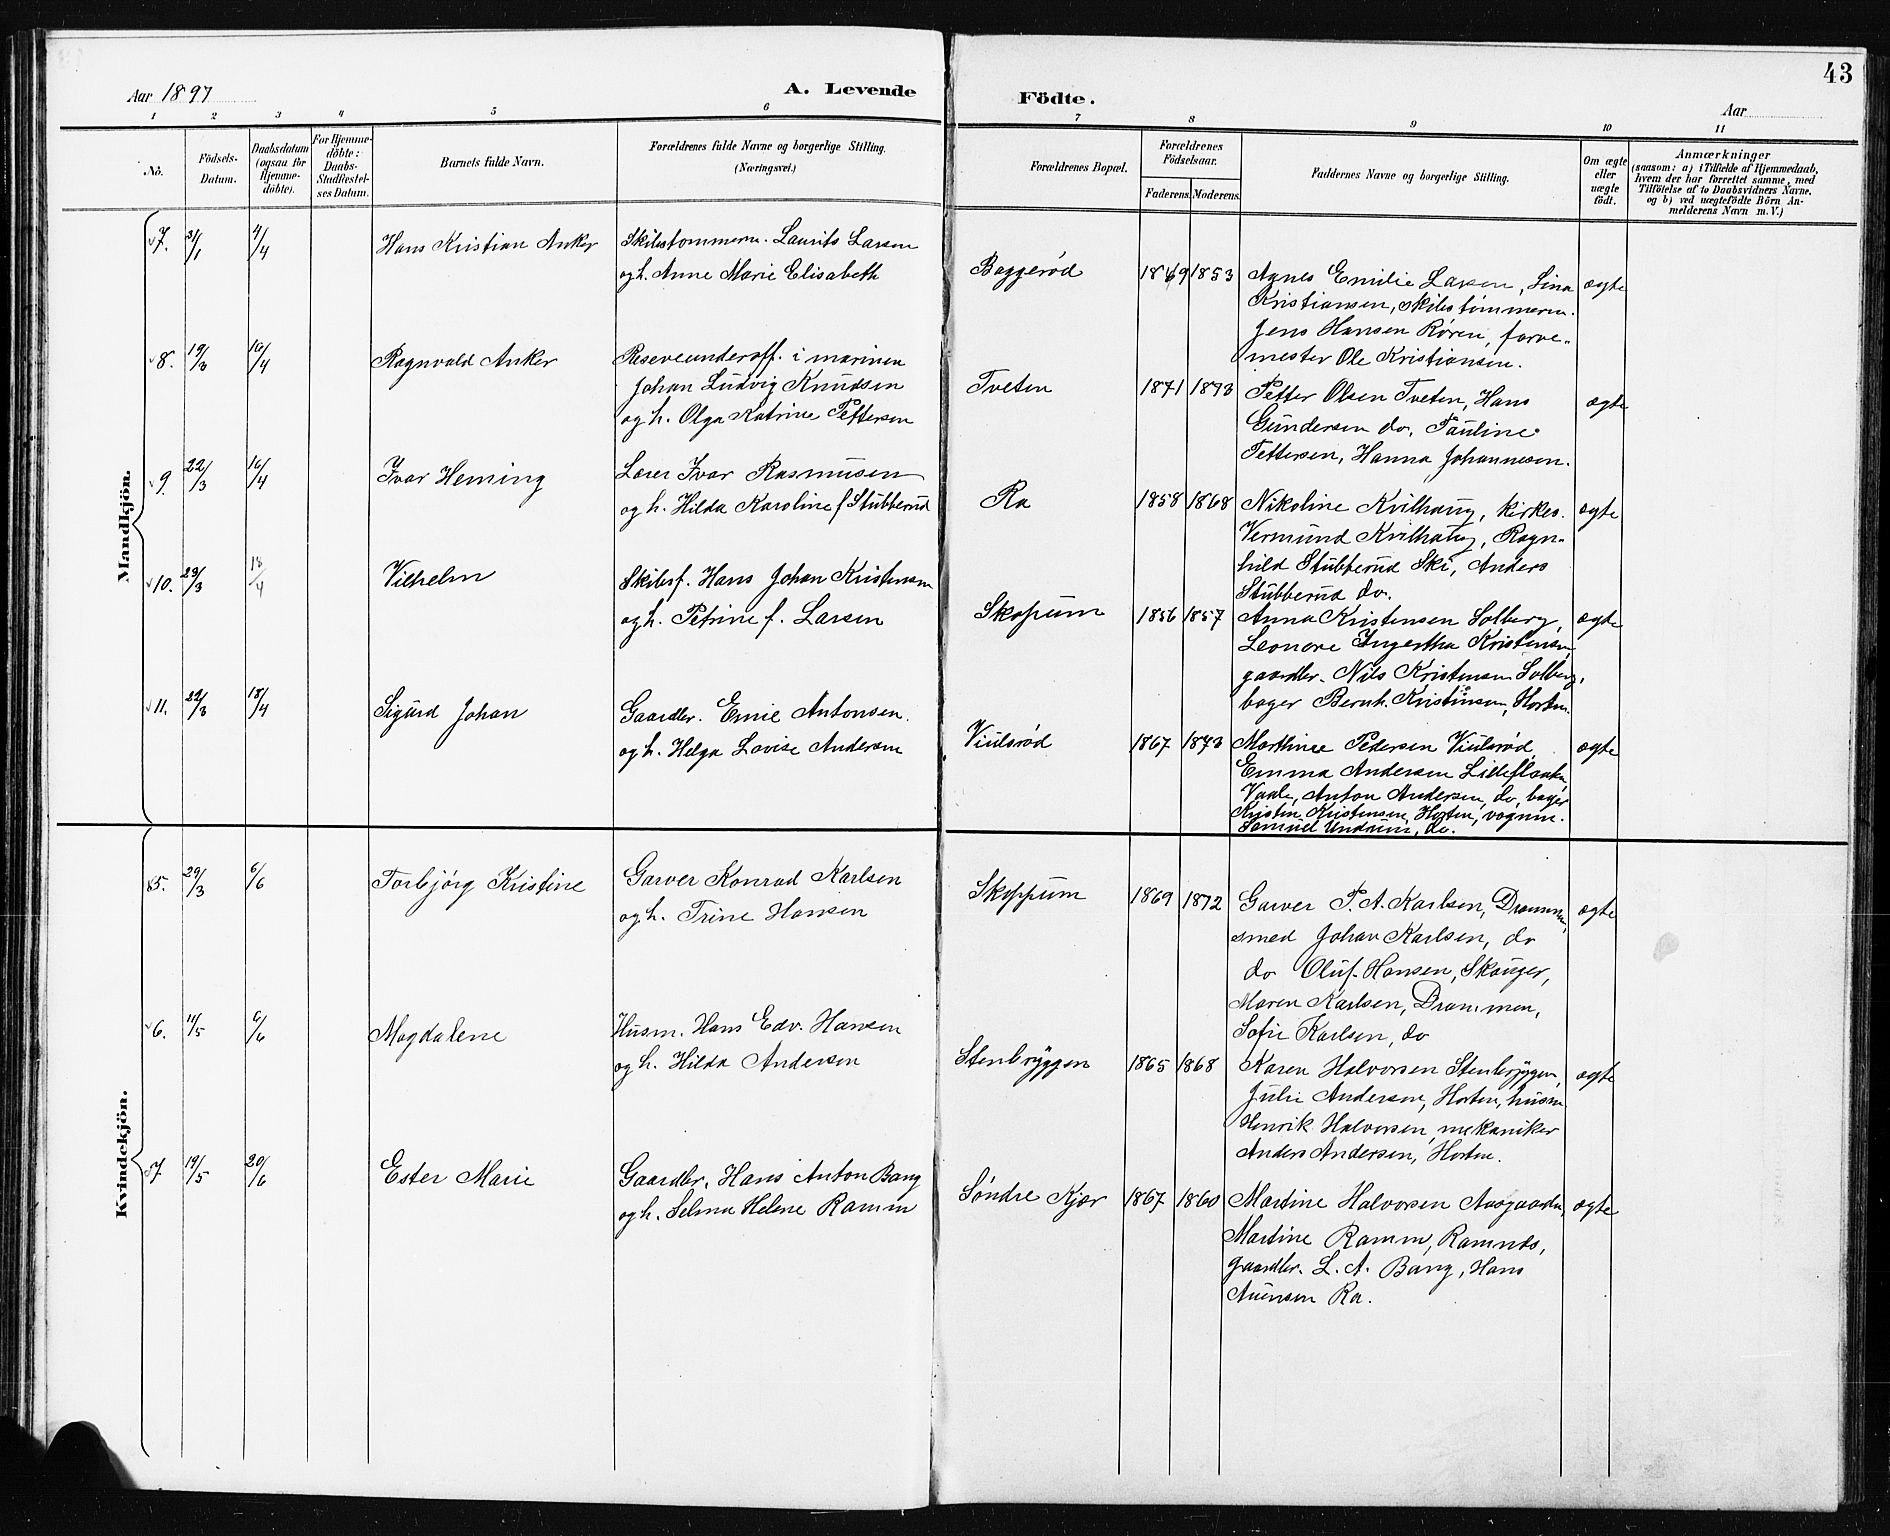 43
Aar 1897
A. Levende
Födte.
Aar
1 2 3 4 5 6
7 8 9 10 11
No.
Födsels-
Datum.
Daabsdatum
(ogsaa for
Hjemme-
döbte).
For Hjemme-
döbte:
Daabs-
Stadfæstel-
ses Datum.
Barnets fulde Navn.
Forældrenes fulde Navne og borgerlige Stilling.
(Næringsvei.)
Forældrenes Bopæl.
Forældrenes
Födselsaar.
Faderens. Moderens.
Faddernes Navne og borgerlige Stilling.
Om ægte
eller
uægte
födt.
Anmærkninger
(saasom: a) i Tilfælde af Hjemmedaab,
hvem der har forrettet samme, med
Tilföielse af to Daabsvidners Navne,
og b) ved uægtefödte Börn An-
melderens Navn m. V.)
Mandkjön.
7. 31/1 4/4 Hans Kristian Anker Skibstømmerm. Laurits Larsen
og h. Anne Marie Elisabeth
Baggerød 1849 1853 Agnes Emilie Larsen, Lina ægte
Kristiansen, skibstømmerm.
Jens Hansen Røren, farve-
mester Ole Kristiansen.
8. 19/3 16/4 Ragnvald Anker Reserveunderoff. i marinen
Johan Ludvig Knudsen
og h. Olga Katrine Pettersen
Tveten 1871 1873 Petter Olsen Tveten, Hans ægte
Gundersen do, Pauline
Pettersen, Hanna Johannesen.
9. 22/3 16/4 Ivar Heming Lærer Ivar Rasmusen
og h. Hilda Karoline f. Stubberud
Ra 1858 1868 Nikoline Kvilhaug, kirkes. ægte
Vermund Kvilhaug, Ragn-
hild Stubberud Ski, Anders
Stubberud do.
10. 23/3 18/4 Vilhelm Skibsf. Hans Johan Kristensen
og h. Petrine f. Larsen
Skopum 1856 1857 Anna Kristensen Solberg, ægte
Leonore Ingertha Kristensen,
gaardbr. Nils Kristensen Solberg,
bager Bernh. Kristensen, Horten.
11. 22/3 18/4 Sigurd Johan Gaardbr. Emil Antonsen.
og h. Helga Lovise Andersen
Viulsrød 1867 1873 Marthine Pedersen Viulsrød, ægte
Emma Andersen
Vaale, Anton Andersen, do, bager
Kristen Kristensen, Horten, vognm.
Samuel Undrum, do.
Kvindekjön.
5. 29/3 6/6 Torbjørg Kristine Garver Konrad Karlsen
og h. Trine Hansen
Skoppum 1869 1872 Garver P. A. Karlsen, Drammen, ægte
smed Johan Karlsen, do
do Oluf Hansen, Skouger,
Maren Karlsen, Drammen,
Sofie Karlsen, do
6. 11/5 6/6 Magdalene Husm. Hans Edv. Hansen
og h. Hilda Andersen
Stenbryggen 1865 1868 Karen Halvorsen Stenbryggen, ægte
Julie Andersen, Horten, husm
Henrik Halvorsen, mekaniker
Anders Andersen, Horten.
7. 19/5 20/6 Ester Marie Gaardbr. Hans Anton Bang
og h. Selma Helene Ramm
Søndre Kjær 1867 1860 Martine Halvorsen Aasgaarden, ægte
Martine Ramm, Ramnes,
gaardbr. L. A. Bang, Hans
Auensen Ra.